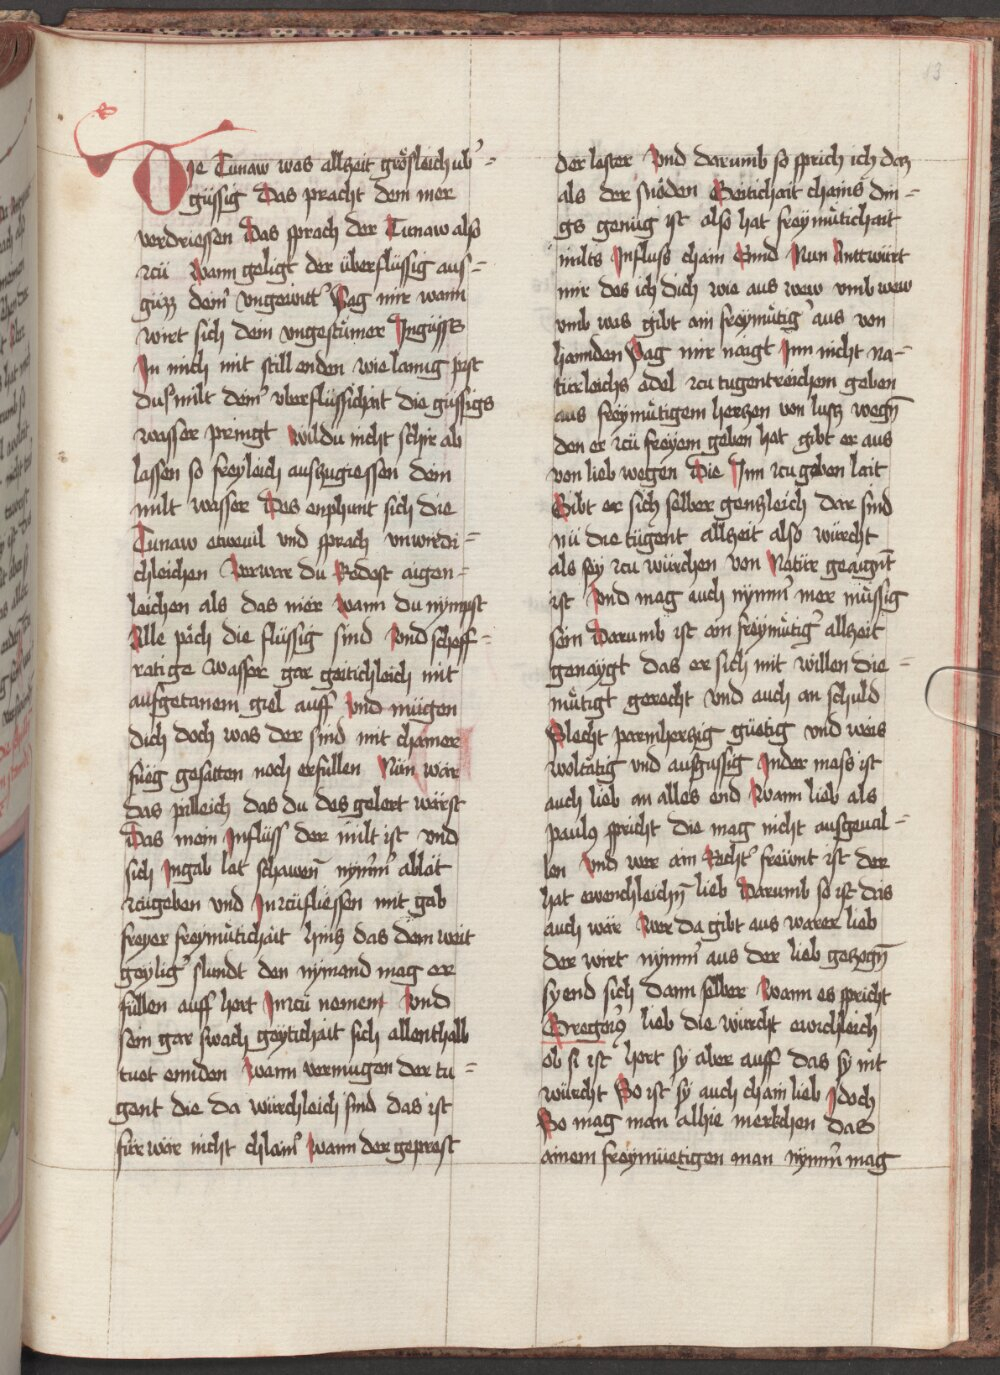 13
Die Tunaw was allzeit grösleich ub̕=
güssig Das pracht dem mer
verdriessen Das sprach der Tunaw also
zcü Wann geligt der überflüssig aus=
güzz dein̕ vngewitt̕ Sag mir wann
wirt sich dein vngestümer Ingüsse
In mich mit still enden wie lanng hast
dus milt dein̕ vberflüssichait die güssigs
wasser pringt wildu nicht schir ab
lassen so freyleich auszugiessen dein
milt wasser Des enphant sich die
Tunaw etweuil vnd sprach vnwirdi=
chleichen Verwar du Redest aigen=
leichen als das mer Wann du nympst
Alle päch die flüssig sind Vnd scheff=
ratige wasser gar geitichleich mit
aufgetanem giel auff Vnd mügen
dich doch was der sind mit chainer
füeg gesatten noch erfullen Nun wär
das pilleich das du des gelert wärst
Das mein Influss der milt ist vnd
sich Ingab lat schawen̄ nym̄m̕ ablat
zcugeben vnd Inzcüfliessen mit gab
freyer freymütichait hintz das dein weit
geylig̕ slundt den nymand mag er
füllen auff hort Inzcü nemen Vnd
sein gar swach geytichait sich allenthalb
tuet ennden Wann vermugen der tu=
gent die da würchleich sind das ist
für war nicht chlain̕ Wann der geprest
der laster Vnd darumb so sprich ich daz
als der snöden Geitichait chains din=
gs genug ist also hat freymütichait
milts Influss chain Ennd Nun Anttwürt
mir des ich dich wie aus wew vmb wew
vmb was gibt ain freymütig̕ aus von
hannden Sag mir naigt Inn nicht na=
türleichs adel zcu tugentreichem geben
aus freymütigem hertzen von lusz wegn̄
den er zcü freyem geben hat gibt er aus
von lieb wegen Die Inn zcu geben lait
Gibt er sich selber gentzleich dar sind
nü die tügent allzeit also würcht
als sey zcu würchen von Natür geaignt̄
ist Vnd mag auch nym̄m̕ mer müssig
sein Darumb ist ain freymütig̕ allzeit
genaygt das er sich mit willen die=
mütigt gerecht vnd auch an schuld
Slecht parmhertzig güetig vnd weis
woltätig vnd ausgussig Inder mass ist
auch lieb an alles end Wann lieb als
paulꝰ spricht die mag nicht ausgeual=
len Vnd wer ain Recht̕ freunt ist der
hat ewenchleichn̄ lieb Darumb so ist das
auch wär Wer da gibt aus warer lieb
der wirt nym̄m̕ aus der lieb gezogn̄
syend sich dann selber Wann es spricht
Gregorꝰ lieb die würcht ewichleich
ob si ist hort sy aber auff das sy nit
würcht So ist sy auch chain lieb Idoch
So mag man alhie merkchen das
ainem freymüetigen man nym̄m̕ mag